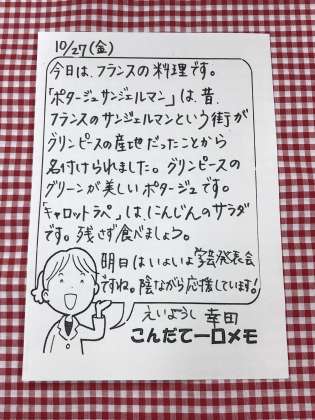 10/27(金)
今日は、フランスの料理です。
「ポタージュサンジェルマン」は、昔、
フランスのサンジェルマンという街が
グリンピースの産地だったことから
名付けられました。グリンピースの
グリーンが美しいポタージュです。
「キャロットラペ」は、にんじんのサラダ
です。残さず食べましょう。
明日はいよいよ学芸発表会
ですね。陰ながら応援しています!
えいようし 幸田
こんだて一口メモ